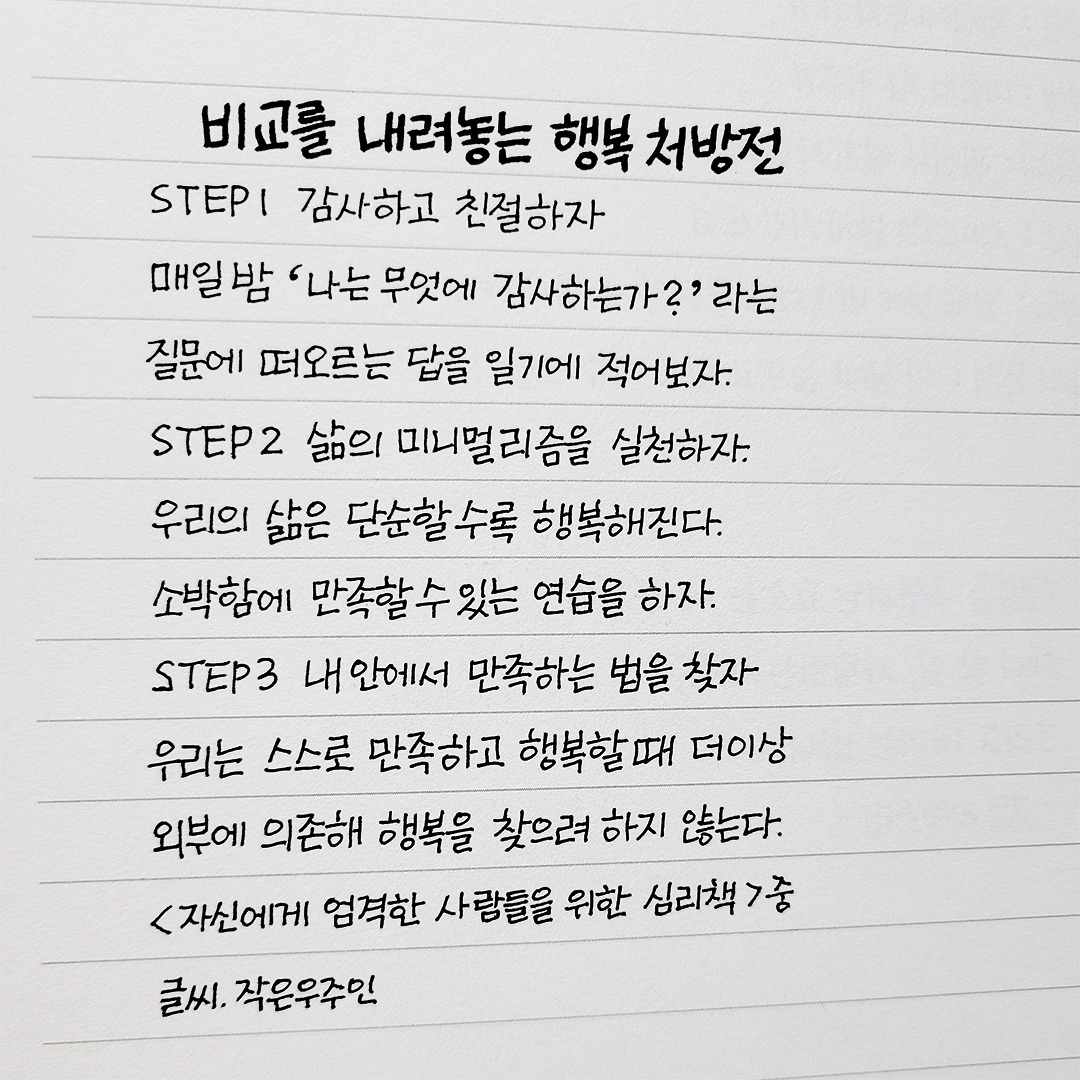 비교를 내려놓는 행복 처방전
STEP1 감사하고 친절하자
매일 밤 ‘나는 무엇에 감사하는가?’ 라는
질문에 떠오르는 답을 일기에 적어보자.
STEP2 삶의 미니멀리즘을 실천하자.
우리의 삶은 단순할수록 행복해진다.
소박함에 만족할 수 있는 연습을 하자.
STEP3 내 안에서 만족하는 법을 찾자
우리는 스스로 만족하고 행복할 때 더이상
외부에 의존해 행복을 찾으려 하지 않는다.
<자신에게 엄격한 사람들을 위한 심리책>중
글씨. 작은우주인